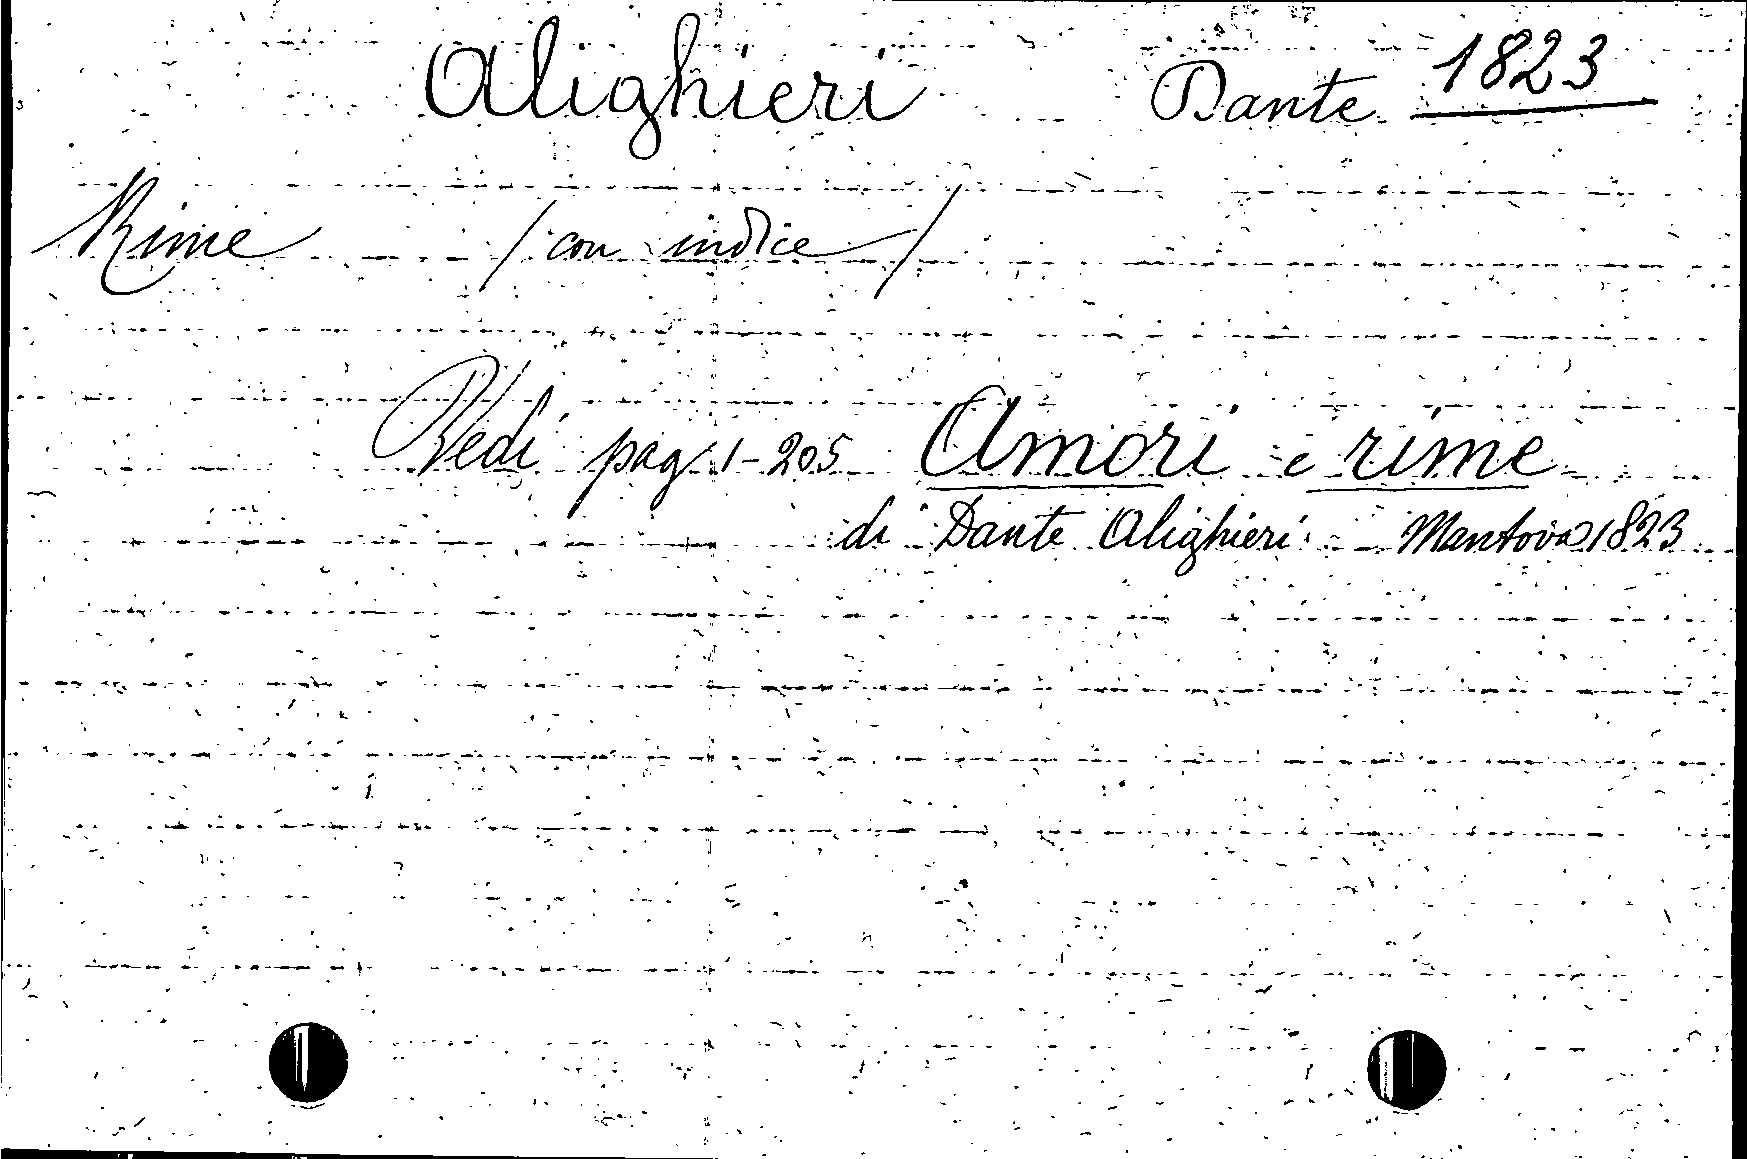 Alighieri Dante 1823
Rime / con indice /
Vedi pag. 1-205 Amori e rime
di Dante Alighieri Mantova 1823